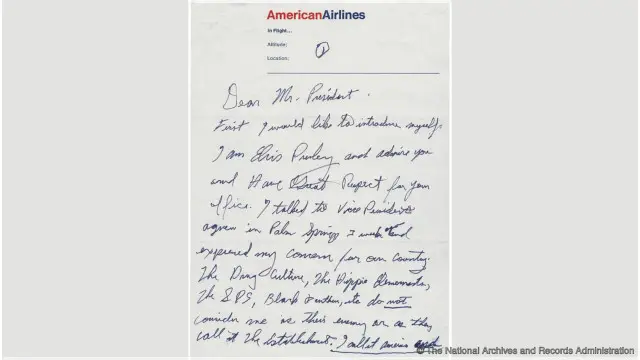 AmericanAirlines
In Flight...
Altitude:
Location:
①
Dear Mr. President.
First I would like to introduce myself.
I am Elvis Presley and admire you
and Have Great Respect for your
office. I talked to Vice President
Agnew in Palm Springs 3 weeks and
expressed my concern for our country.
The Drug Culture, The Hippie Elements,
The SDS, Black Panthers, etc do not
consider me as their enemy or as they
call it The Establishment. I call it America
© The National Archives and Records Administration